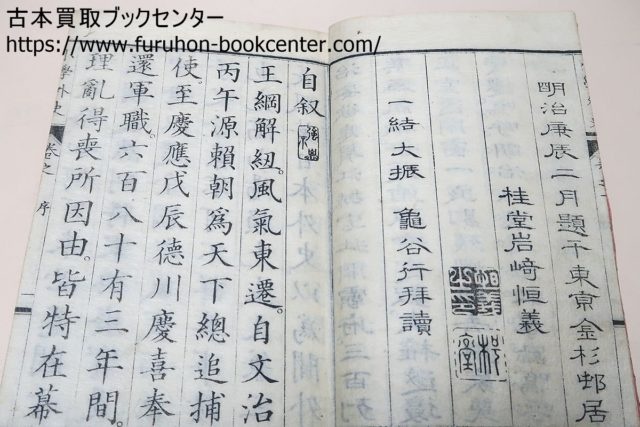 古本買取ブックセンター
https://www.furuhon-bookcenter.com/
明治庚辰二月題于東亰金杉邨居
桂堂岩﨑恒義
一結大振 龜谷行拜讀
自叙
王綱解紐。風氣東遷。自文治
丙午源賴朝爲天下總追捕
使。至慶應戊辰德川慶喜奉
還軍職。六百八十有三年間。
理亂得喪所因由。皆特在幕
學外史 卷之 序